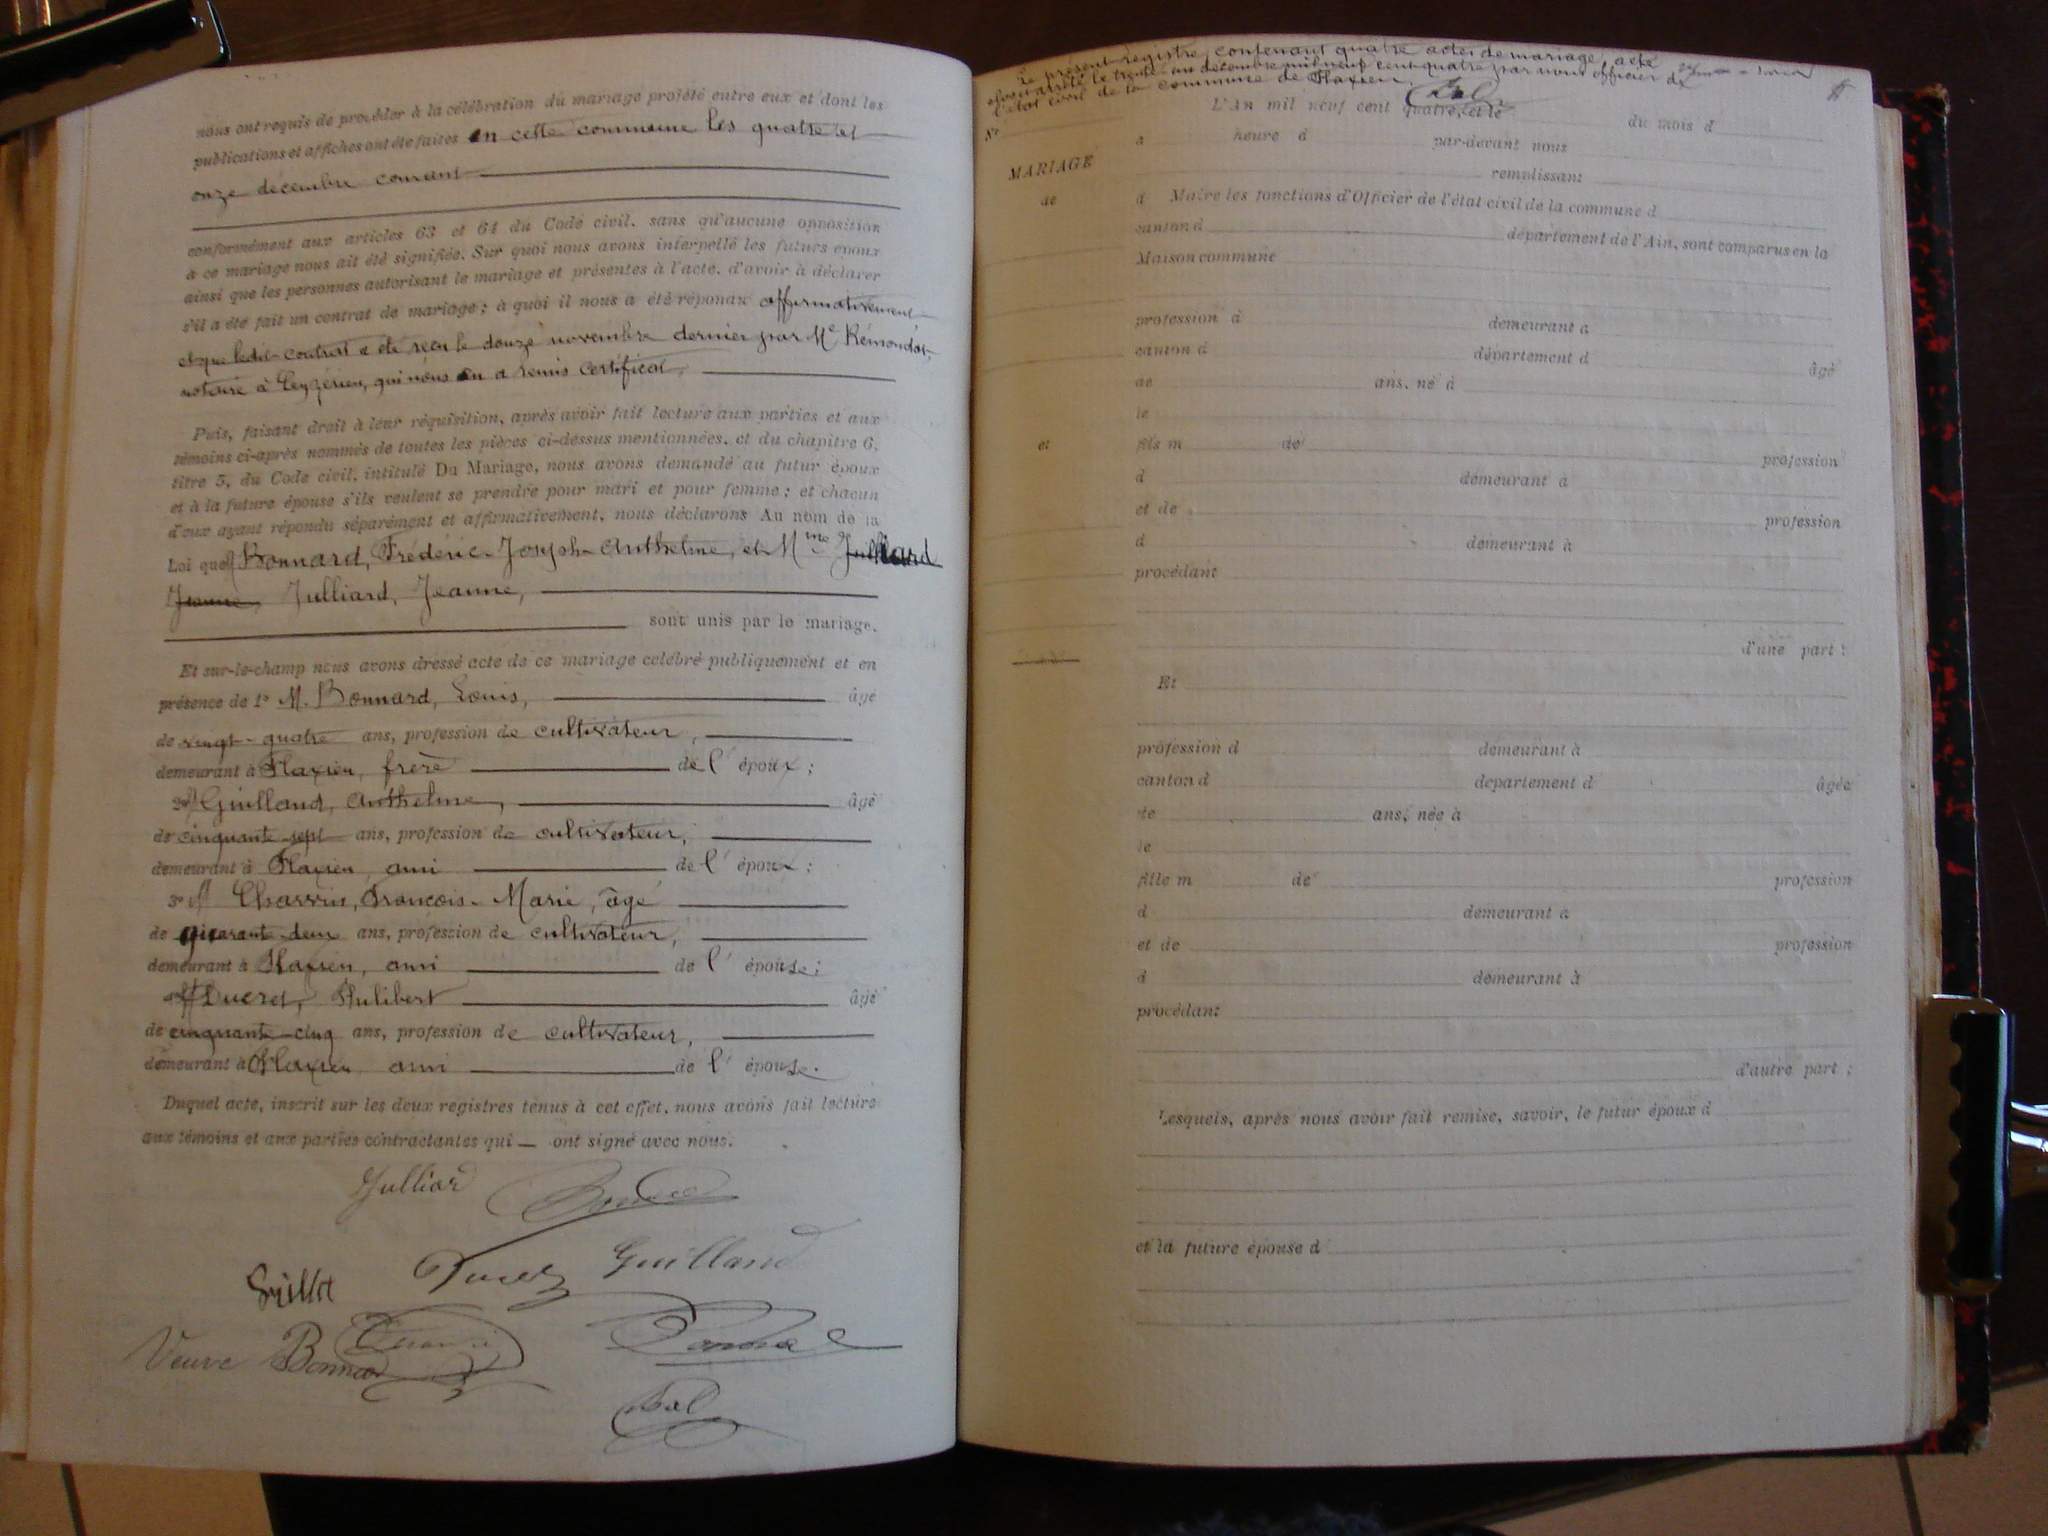 nous ont requis de procéder à la célébration du mariage projeté entre eux et dont les
publications et affiches ont été faites en cette commune les quatre et
onze décembre courant
conformément aux articles 63 et 64 du Code civil, sans qu'aucune opposition
à ce mariage nous ait été signifiée. Sur quoi nous avons interpellé les futurs époux
ainsi que les personnes autorisant le mariage et présentes à l'acte, d'avoir à déclarer
s'il a été fait un contrat de mariage ; à quoi il nous a été répondu affirmativement
et que ledit contrat a été reçu le douze novembre dernier par Me Rémondat,
notaire à Leyzérieu, qui nous en a remis certificat.
Puis, faisant droit à leur réquisition, après avoir fait lecture aux parties et aux
témoins ci-après nommés de toutes les pièces ci-dessus mentionnées, et du chapitre 6,
titre 5, du Code civil, intitulé Du Mariage, nous avons demandé au futur époux
et à la future épouse s'ils veulent se prendre pour mari et pour femme ; et chacun
d'eux ayant répondu séparément et affirmativement, nous déclarons Au nom de la
Loi que Bonnard, Frédéric-Joseph-Anthelme, et Mme Julliard
Jeanne, Julliard, Jeanne,
sont unis par le mariage.
Et sur-le-champ nous avons dressé acte de ce mariage célébré publiquement et en
présence de 1° M. Bonnard, Louis, âgé
de vingt-quatre ans, profession de cultivateur,
demeurant à Flaxieu, frère de l'époux ;
2° Guilland, Anthelme, âgé
de cinquante-sept ans, profession de cultivateur,
demeurant à Flaxieu, ami de l'époux ;
3° Charvin, François-Marie, âgé
de quarante-deux ans, profession de cultivateur,
demeurant à Flaxieu, ami de l'épouse ;
Ducret, Philibert âgé
de cinquante-cinq ans, profession de cultivateur,
demeurant à Flaxieu ami de l'épouse.
Duquel acte, inscrit sur les deux registres tenus à cet effet, nous avons fait lecture
aux témoins et aux parties contractantes qui — ont signé avec nous.
Julliard Bonnard
Grillet Ducret Guilland
Veuve Bonnard
Bal
Le présent registre, contenant quatre actes de mariage, a été
clos et arrêté le trente-un décembre mil neuf cent quatre par nous officier de
l'état civil de la commune de Flaxieu. Bal
N°
L'An mil neuf cent quatre, et le du mois d
a heure d par-devant nous
MARIAGE
remplissant
de
d Maire les fonctions d'Officier de l'état civil de la commune d
canton d département de l'Ain, sont comparus en la
Maison commune
profession d demeurant à
canton d département d âgé
de ans, né à
le
et
fils m de profession
d demeurant à
et de profession
d demeurant à
procédant
d'une part ;
Et
profession d demeurant à
canton d département d âgée
de ans, née à
le
fille m de profession
d demeurant à
et de profession
d demeurant à
procédant
d'autre part ;
Lesquels, après nous avoir fait remise, savoir, le futur époux d
et la future épouse d